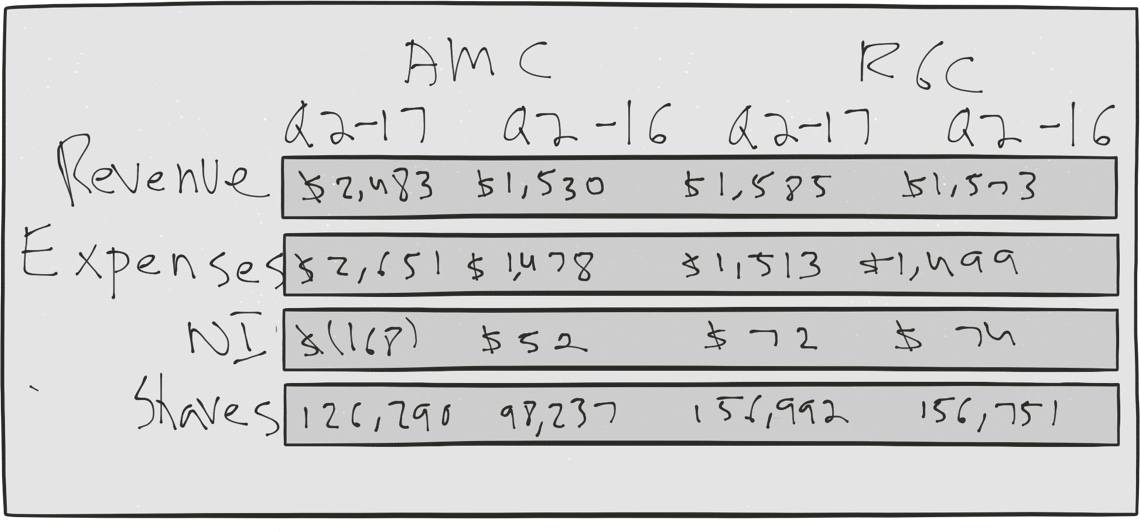 AMC RGC
Q2-17 Q2-16 Q2-17 Q2-16
Revenue $2,483 $1,530 $1,585 $1,573
Expenses $2,651 $1,478 $1,513 $1,499
NI $(168) $52 $72 $74
Shares 126,290 98,237 156,992 156,751